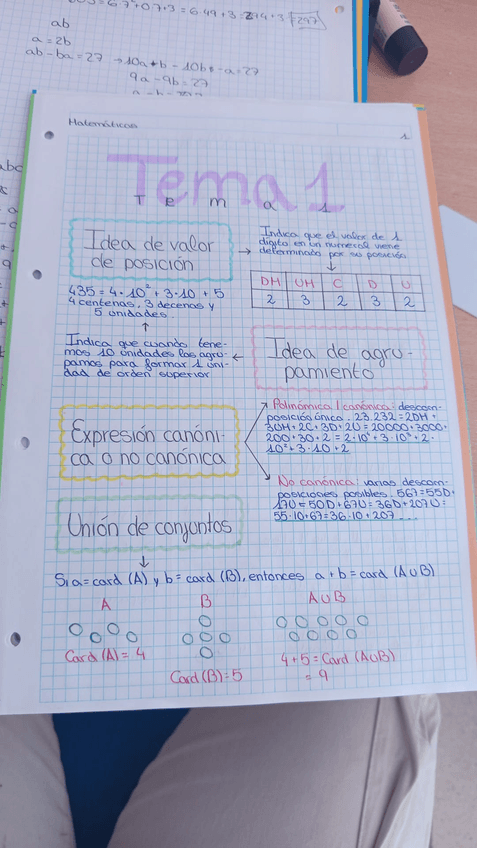 ab
a = 2b
ab - ba = 27 → 10a + b - 10b - a = 27
9a - 9b = 27
abc
Matemáticas
1
Tema 1
T E m a 1
Idea de valor
de posición
→ Indica que el valor de 1
dígito en un numeral viene
determinado por su posición
DM UM C D U
2 3 2 3 2
435 = 4·10² + 3·10 + 5
4 centenas, 3 decenas y
5 unidades.
Indica que cuando tene-
mos 10 unidades las agru-
pamos para formar 1 uni-
dad de orden superior
Idea de agru-
pamiento
Expresión canóni-
ca o no canónica
Polinómica / canónica: descom-
posición única. 23.232 = 2DM +
3UM + 2C + 3D + 2U = 20000 + 3000 +
200 + 30 + 2 = 2·10⁴ + 3·10³ + 2·
10² + 3·10 + 2
No canónica: varias descom-
posiciones posibles. 567 = 55D +
17U = 50D + 67U = 36D + 207U =
55·10 + 67 = 36·10 + 207...
Unión de conjuntos
Si a = card (A) y b = card (B), entonces a + b = card (A∪B)
A B A∪B
Card (A) = 4
Card (B) = 5
4 + 5 = Card (A∪B)
= 9